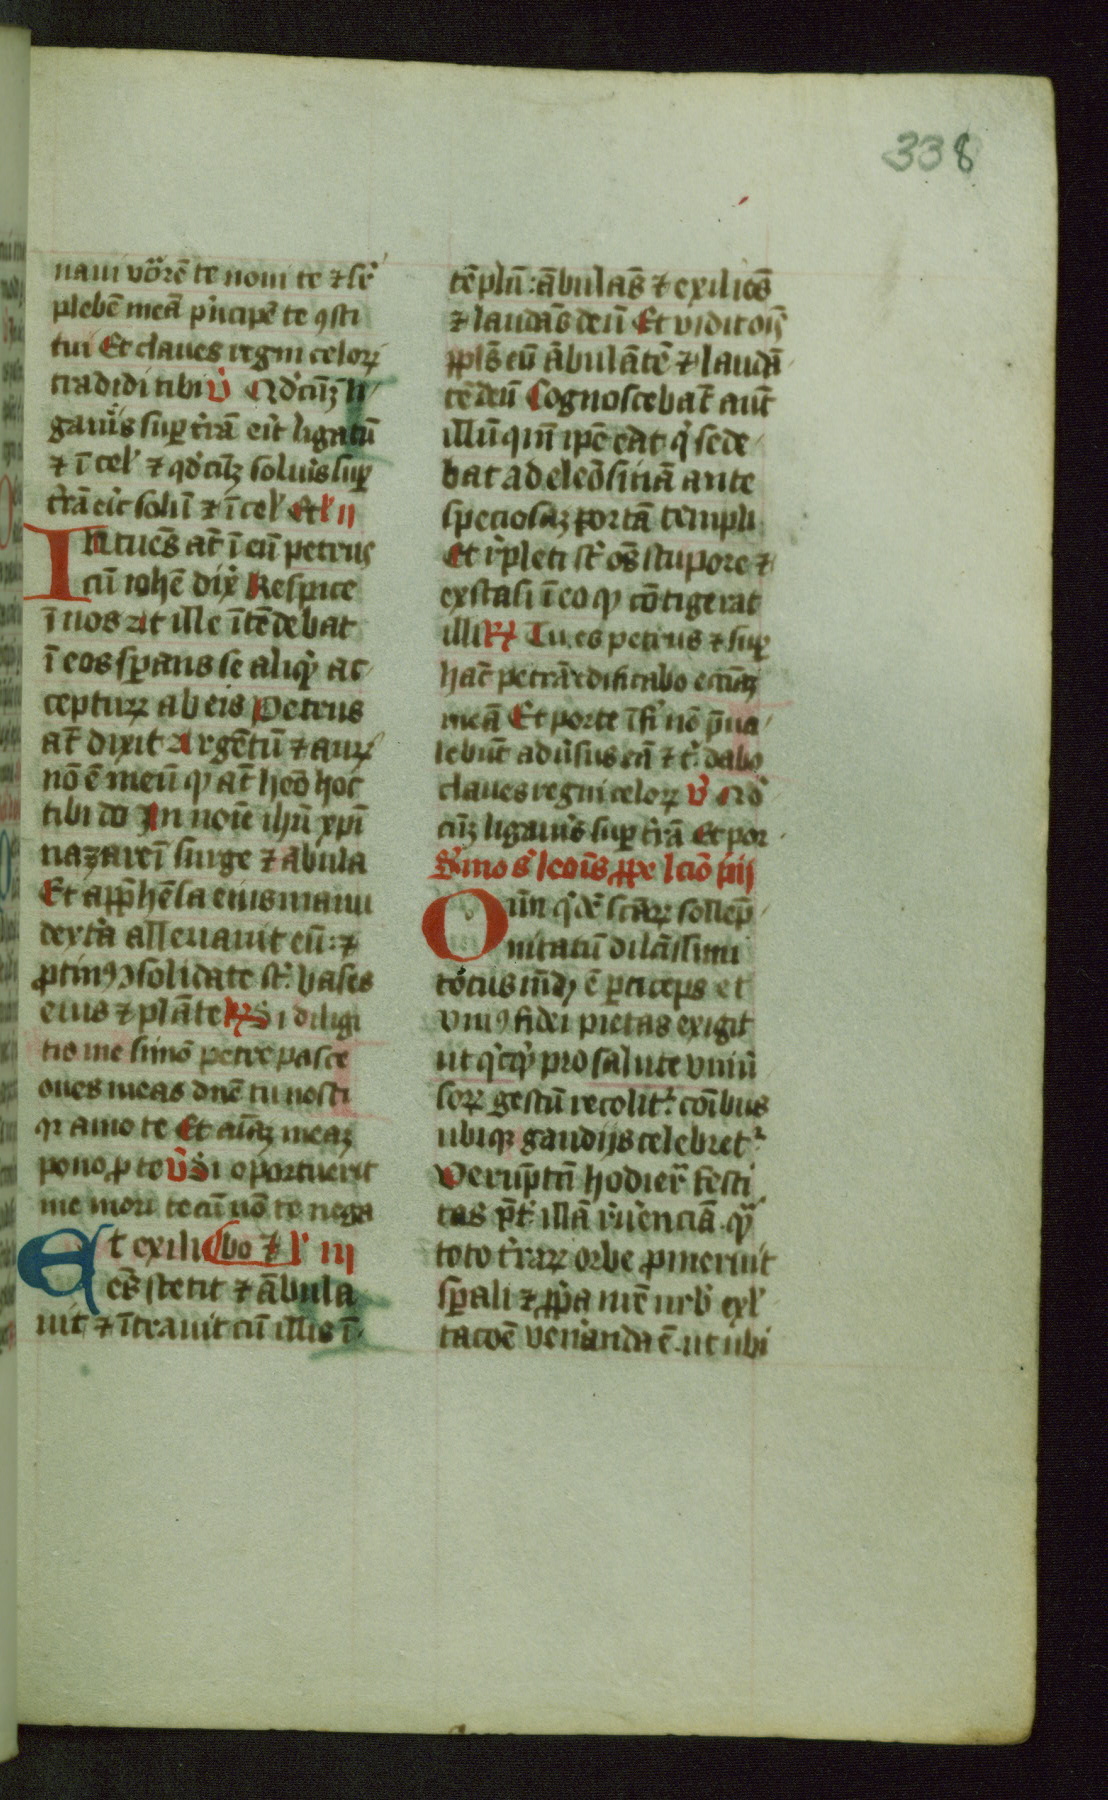 338
naui vōrē te noui te ⁊ sr̄
plebē meā pⁱncipē te ꝯsti
tui Et claues regni celoꝝ
tradidi tibi v̄ Qd̾cūꝫ li
gauis̾ suꝑ tr̄ā erit ligatū
⁊ ī cel' ⁊ qd̾cūꝫ soluis̾ suꝑ
tr̄ā erit solut̄ ⁊ ī cel' Et l' ij
Intuēs at̄ ī eū petrus
cū iohē dix̾ Respice
ī nos At ille ītēdebat
ī eos sꝑans se aliqͥ ac
cepturꝝ ab eis Petrus
at̄ dixit Argētū ⁊ auꝝ
nō ē meū qͩ at̄ heō hoc
tibi do In noīe ihū xp̄i
nazareī surge ⁊ abula
Et app̄hēsa eius manu
dextͣa alleuauit eū: ⁊
ꝓtinꝰ ꝯsolidate st̄ bases
eius ⁊ plāte ℟ Si diligi
tis me simō petre pasce
oues meas dn̄e tu nosti
qꝛ amo te Et aīaꝫ meaꝫ
pono ꝓ te v̄ Si oportuerit
me mori tecū nō te nega
bo ⁊ l' iij
Et exili
ēs stetit ⁊ ābula
uit ⁊ ītrauit cū illis ī
tēplū: ābulās ⁊ exiliēs
⁊ laudās deū Et vidit oīs
ppl̄s eū ābulātē ⁊ laudā
tē deū Cognoscebāt aut̄
illū qm̄ ip̄e erat qͥ sede
bat ad eleōsinā ante
speciosaꝫ portā templi
Et īpleti st̄ oēs stupore ⁊
exstasi ī eo qͩ cōtigerat
illi ℟ Tu es petrus ⁊ suꝑ
hāc petrā edificabo eccīaꝫ
meā Et porte īfi nō p̄ua
lebūt adūsus eā ⁊ tͥ dabo
claues regni celoꝝ v̄ Qd̾
cūꝫ ligauis̾ suꝑ tr̄ā Et por
Sͬmo s̄ leōīs pp̄e lc̄io iiij
Oīm qͥdē scāꝝ sollēp
nitatū dilc̄issimi
totus mūdꝰ ē ꝑticeps et
vniꝰ fidei pietas exigit
ut qͥcqͥd pro salute vniū
soꝝ gestū recolitͬ cōibus
ubiqꝫ gaudijs celebretͬ
Verūptn̄ hodier̄ festi
tas p̄t̾ illā r̾uerenciā qͣ
toto tr̄aꝝ orbe ꝓmeruit
sp̄ali ⁊ pp̄a niē urb' exl'
tacōē venāanda ē ut ubi